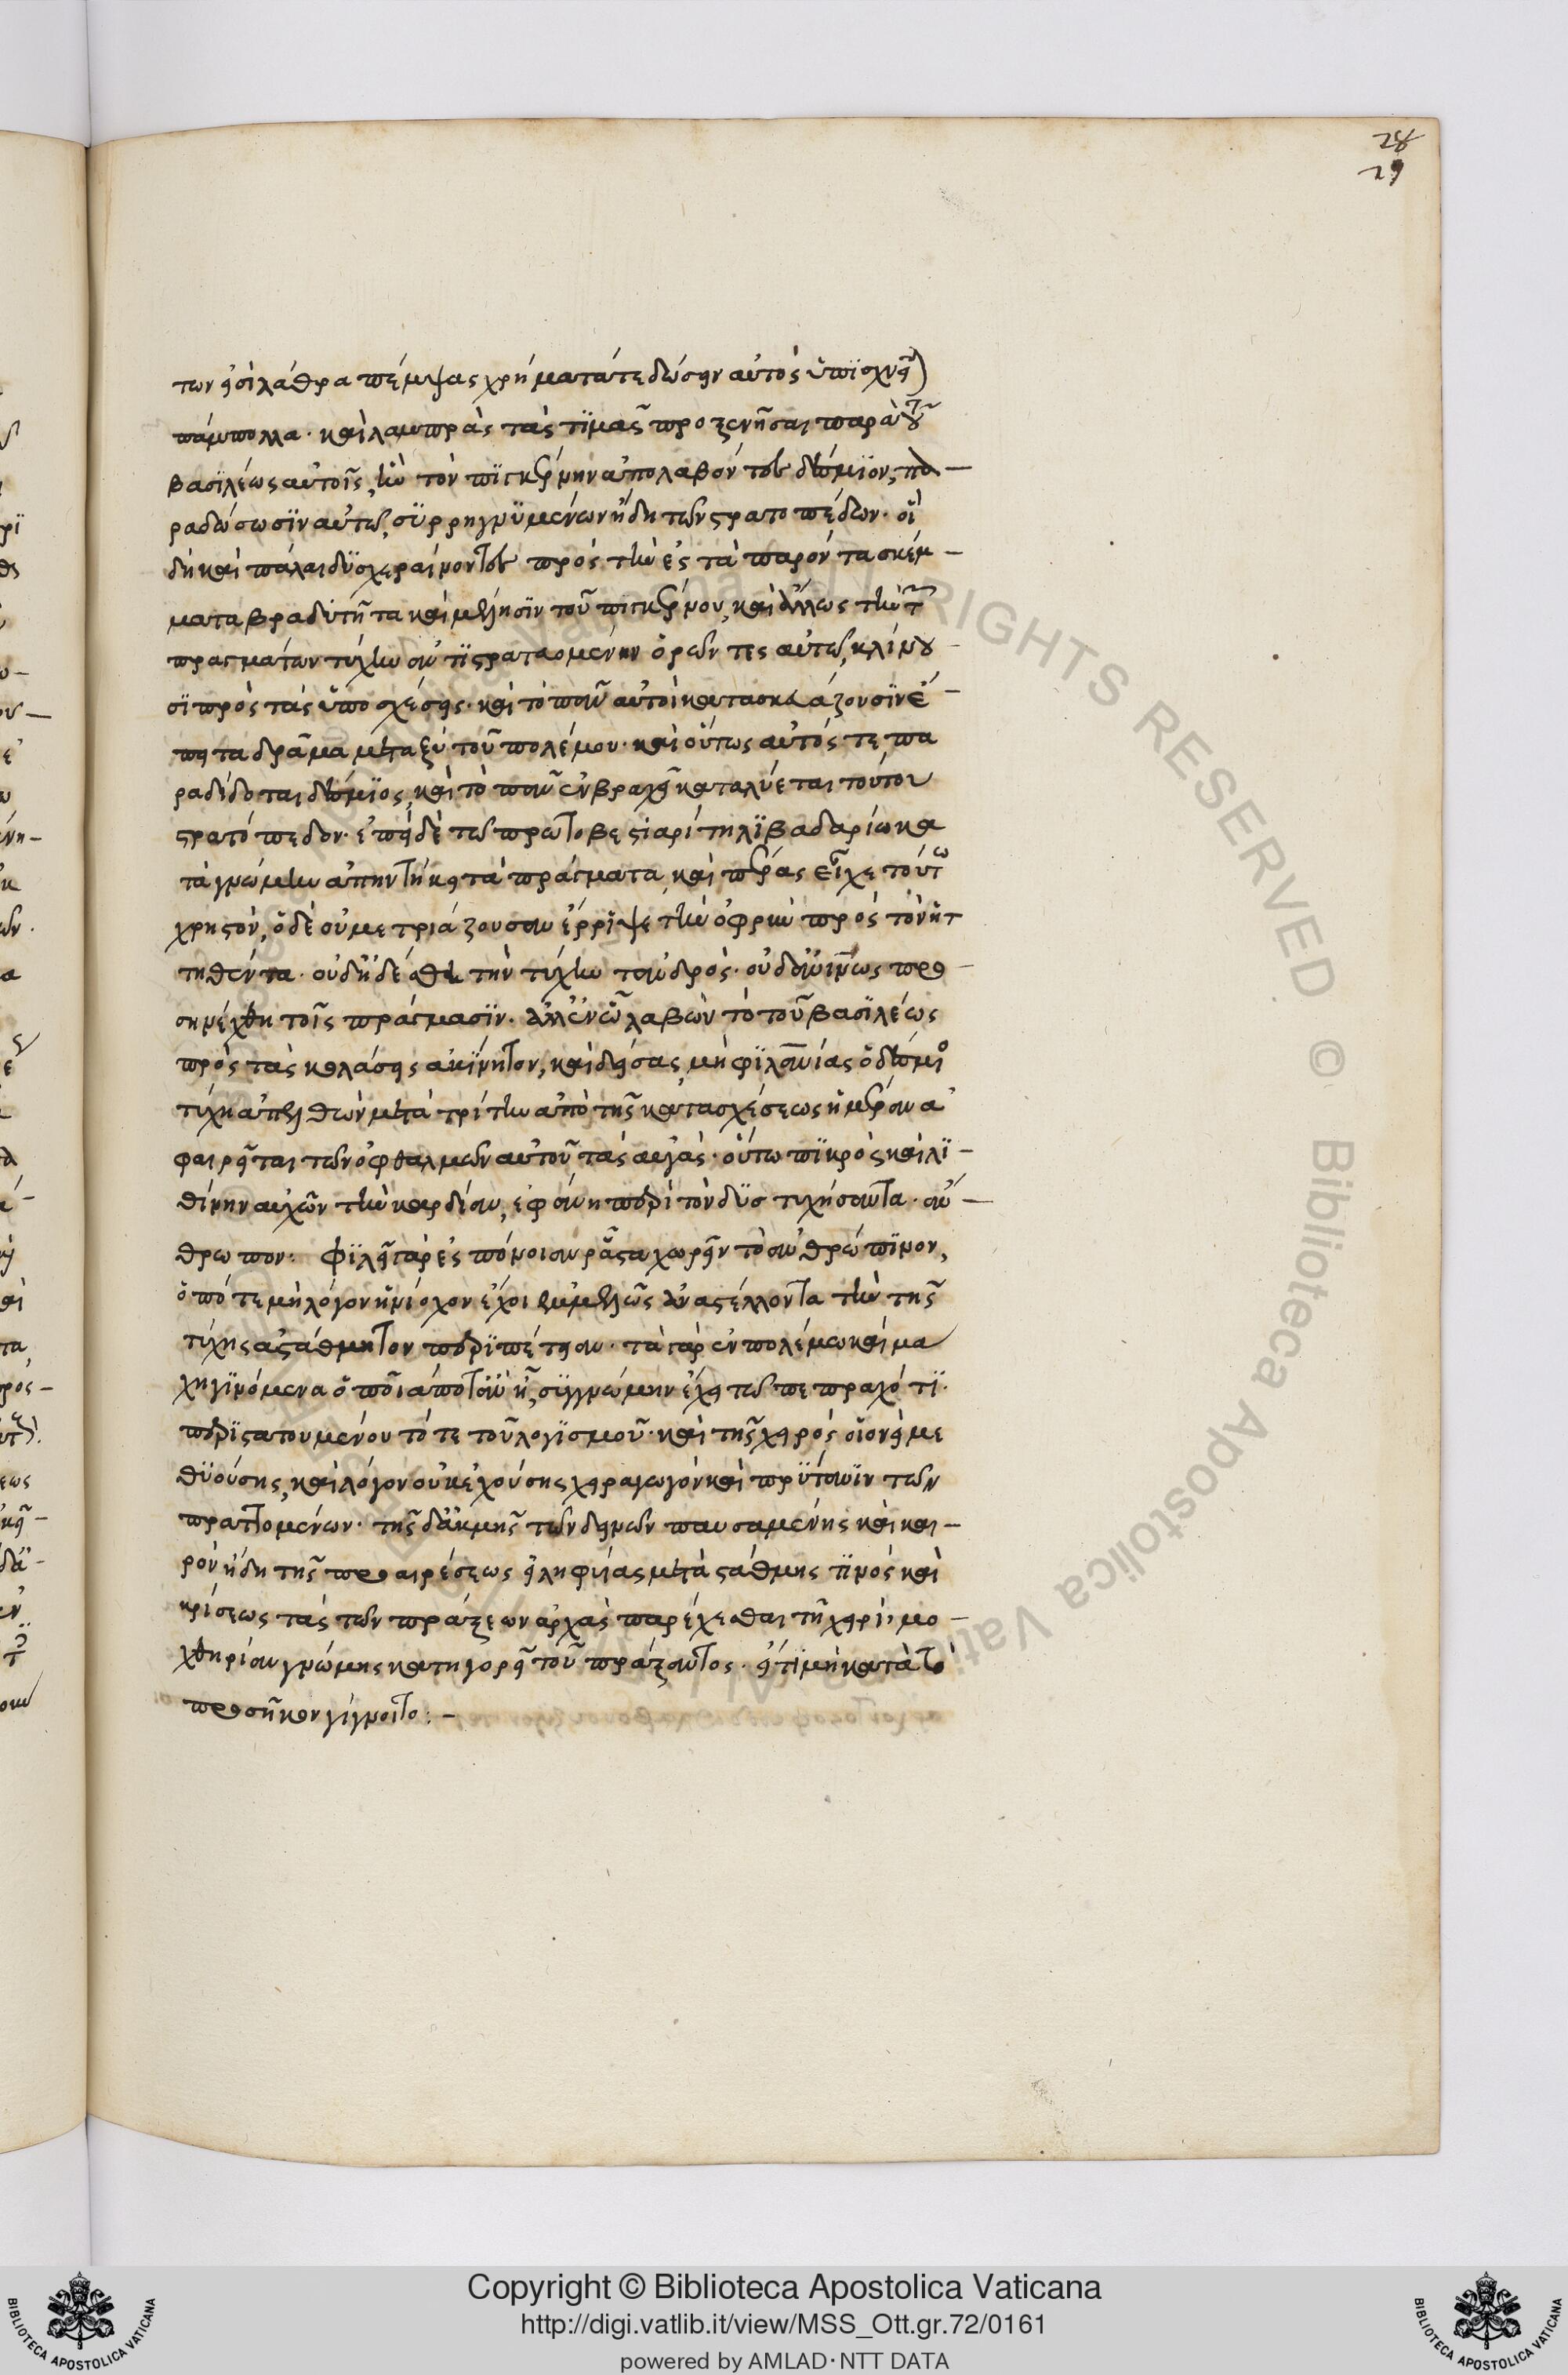 28
29
των εἰσὶ λάθρα πέμψας χρήματά τε δώσειν αὐτὸς ὑπισχνεῖται
πάμπολλα· καὶ λαμπρὰς τὰς τιμὰς προξενῆσαι παρὰ τοῦ
βασιλέως αὐτοῖς, ἢν τὸν πιγκέρνην ἀπολαβόντες δέσμιον, πα
ραδώσωσιν αὐτῷ, συρρηγνυμένων ἤδη τῶν στρατοπέδων. οἳ
δὴ καὶ πάλαι δυσχεραίνοντες πρὸς τὴν ἐς τὰ παρόντα σκέμ
ματα βραδυτῆτα καὶ μέλλησιν τοῦ πιγκέρνου, καὶ ἄλλως τὴν τῶν
πραγμάτων τύχην ἀντιστρατευομένην ὁρῶντες αὐτῷ, κλίνου
σι πρὸς τὰς ὑποσχέσεις· καὶ τὸ πᾶν αὐτοὶ κατασκευάζουσιν ἔ
πειτα δρᾶμα μεταξὺ τοῦ πολέμου· καὶ οὕτως αὐτός τε πα
ραδίδοται δέσμιος, καὶ τὸ πᾶν ἐν βραχεῖ καταλύεται τούτου
στρατόπεδον. ἐπεὶ δὲ τῷ πρωτοβεστιαρίτῃ λιβαδαρίῳ κα
τὰ γνώμην ἀπηντήκει τὰ πράγματα, καὶ πέρας εἶχε τούτῳ
χρηστόν, ὁ δὲ οὐ μετριάζουσαν ἔρριψε τὴν ὀφρὺν πρὸς τὸν ἡτ
τηθέντα· οὐδ' ᾐδέσθη τὴν τύχην τἀνδρός· οὐδ' εὐμενῶς προ
σηνέχθη τοῖς πράγμασιν. ἀλλ' ἐν νῷ λαβὼν τὸ τοῦ βασιλέως
πρὸς τὰς κολάσεις ἀκίνητον, καὶ δείσας, μὴ φιλανθρωπίας ὁ δέσμιος
τύχῃ ἀπελθὼν μετὰ τρίτην ἀπὸ τῆς κατασχέσεως ἡμέραν ἀ
φαιρεῖται τῶν ὀφθαλμῶν αὐτοῦ τὰς αὐγάς· οὕτω πικρὸς καὶ λι
θίνην αὐχῶν τὴν καρδίαν, ἐφάνη περὶ τὸν δυστυχήσαντα ἄν
θρωπον. φιλεῖ γὰρ ἐς ἀπόνοιαν ῥᾷστα χωρεῖν τὸ ἀνθρώπινον,
ὁπότε μὴ λόγον ἡνίοχον ἔχοι ἐμμελῶς ἀναστέλλοντα τὴν τῆς
τύχης ἀστάθμητον περιπέτειαν. τὰ γὰρ ἐν πολέμῳ καὶ μά
χῃ γινόμενα ὁποῖά ποτ' ἂν ᾖ, συγγνώμην ἔχει τῷ πεπραχότι.
περισπατουμένου τότε τοῦ λογισμοῦ· καὶ τῆς χειρὸς οἱονεὶ με
θυούσης, καὶ λόγον οὐκ ἐχούσης χειραγωγὸν καὶ πρύτανιν τῶν
πραττομένων. τῆς δ' ἀκμῆς τῶν δεινῶν παυσαμένης καὶ και
ρὸν ἤδη τῆς προαιρέσεως εἰληφυίας μετὰ στάθμης τινὸς καὶ
κρίσεως τὰς τῶν πράξεων ἀρχὰς παρέχεσθαι τῇ χειρί, μο
χθηρίαν γνώμης κατηγορεῖ τοῦ πράξαντος. εἴ τι μὴ κατὰ τὸ
προσῆκον γίγνοιτο:-
Copyright © Biblioteca Apostolica Vaticana
http://digi.vatlib.it/view/MSS_Ott.gr.72/0161
powered by AMLAD·NTT DATA
BIBLIOTECA APOSTOLICA VATICANA
BIBLIOTECA APOSTOLICA VATICANA